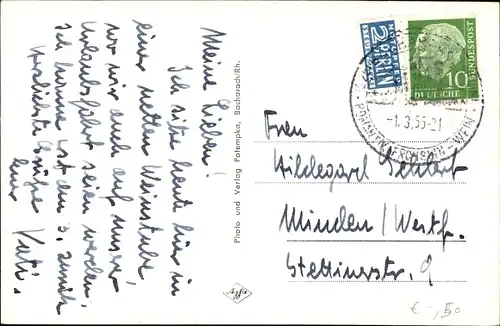 Meine Lieben!
Ich sitze heut hier in
einer netten Weinstube,
wo wir auch auf unser
Urlaubsfahrt seien werden.
Ich komme erst am 3. zurück
Herzlichste Grüße
Eure
Photo und Verlag Potempka, Bacharach/Rh.
Agfa
NOTOPFER
2 BERLIN
STEUERMARKE
DEUTSCHE
BUNDESPOST
10
-1. 3.55-21
Frau
Hildegard
Minden/Westf.
Stettinerstr. 9
€ -,50